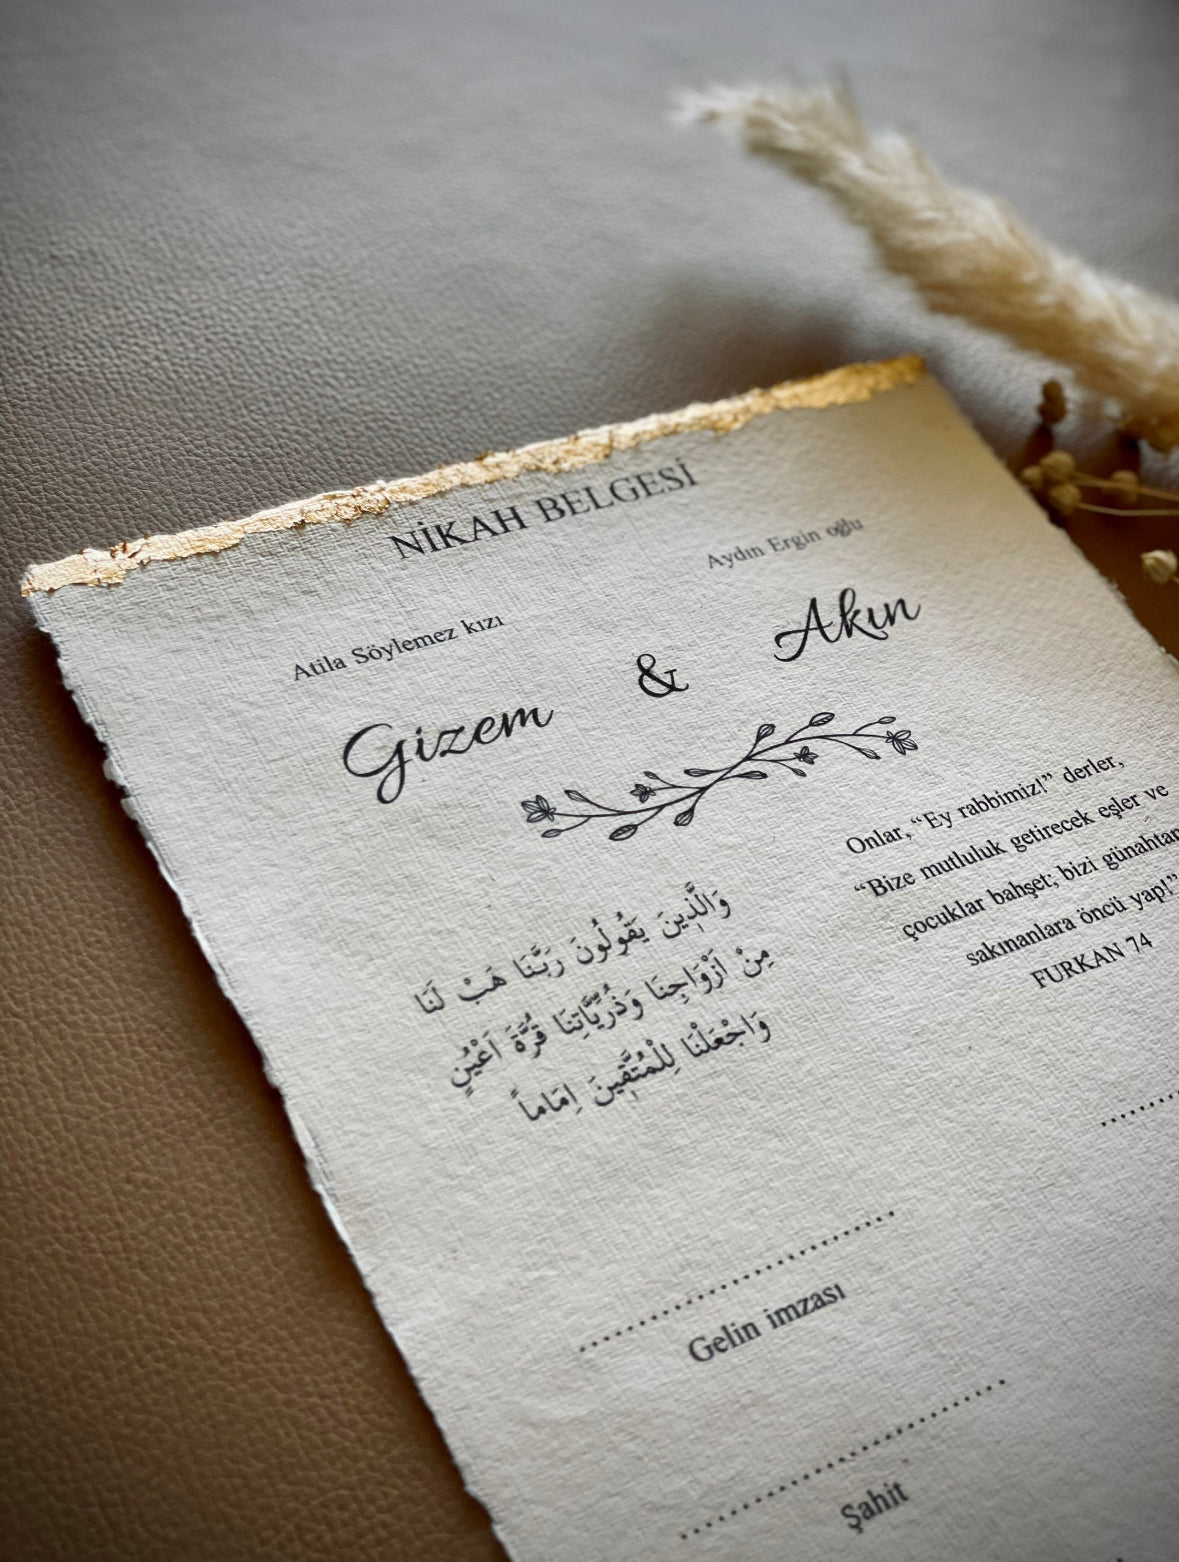 NİKAH BELGESİ
Atila Söylemez kızı
Aydın Ergin oğlu
Gizem & Akın
وَالَّذِينَ يَقُولُونَ رَبَّنَا هَبْ لَنَا
مِنْ اَزْوَاجِنَا وَذُرِّيَّاتِنَا قُرَّةَ اَعْيُنٍ
وَاجْعَلْنَا لِلْمُتَّقِينَ اِمَاماً
Onlar,“Ey rabbimiz!” derler,
“Bize mutluluk getirecek eşler ve
çocuklar bahşet; bizi günahtan
sakınanlara öncü yap!”
FURKAN 74
Gelin imzası
Şahit